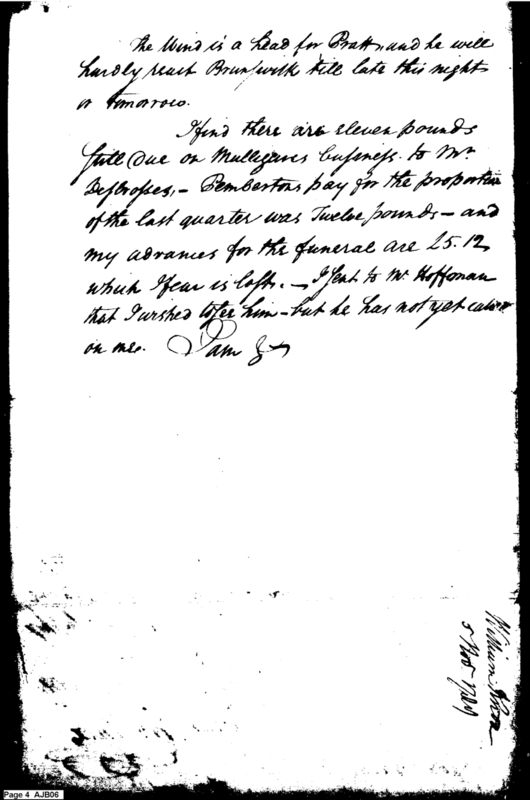 The Wind is a head for Pratt, and he will
hardly reach Brunswick till late this night
or tomorrow.
I find there are eleven pounds
still Due on Mulligans business to Mr
Desbrosses, – Pembertons pay for the proportion
of the last quarter was Twelve pounds – and
my advances for the funeral are 25.12
which I fear is lost. – I sent to Mr Hoffman
that I wished to see him – but he has not yet called
on me. I am &c
William
5 Nov
Page 4 AJB06